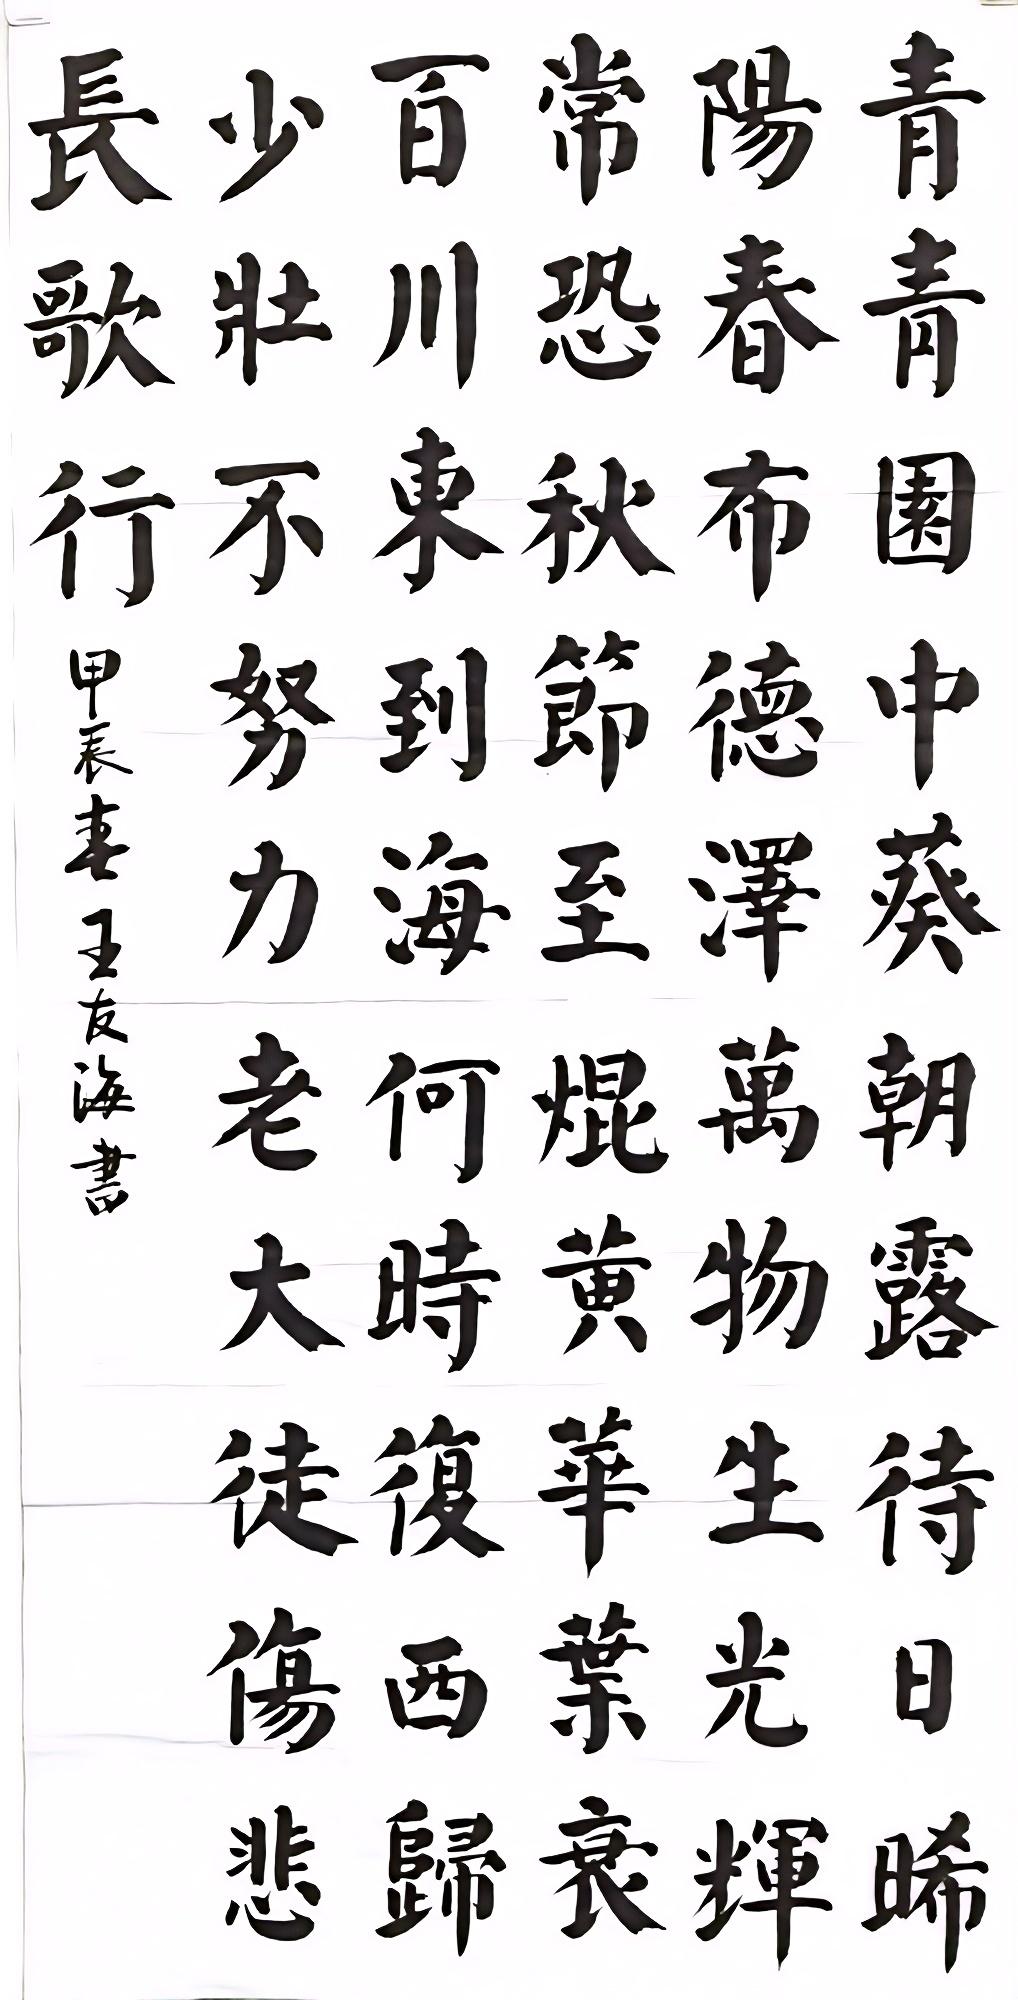 青青園中葵朝露待日晞
陽春布德澤萬物生光輝
常恐秋節至焜黄華葉衰
百川東到海何時復西歸
少壯不努力老大徒傷悲
長歌行
甲辰春王友海書